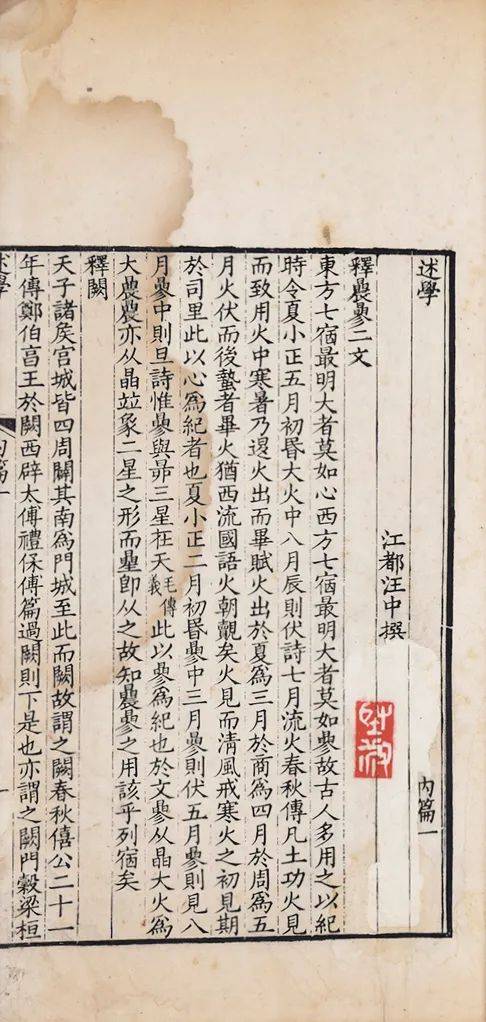 述學 內篇一
江都汪中撰
釋曟曑二文
東方七宿最明大者莫如心西方七宿最明大者莫如曑故古人多用之以紀
時令夏小正五月初昬大火中八月辰則伏詩七月流火春秋傳凡土功火見
而致用火中寒暑乃退火出而畢賦火出於夏爲三月於商爲四月於周爲五
月火伏而後蟄者畢火猶西流國語火朝覿矣火見而淸風戒寒火之初見期
於司里此以心爲紀者也夏小正二月初昬曑中三月曑則伏五月曑則見八
月曑中則旦詩惟曑與昴三星在天毛傳義此以曑爲紀也於文曑从晶大火爲
大曟曟亦从晶竝象二星之形而曐卽从之故知曟曑之用該乎列宿矣
釋闕
天子諸矦宮城皆四周闢其南爲門城至此而闕故謂之闕春秋僖公二十一
年傳鄭伯亯王於闕西辟太傅禮保傅篇過闕則下是也亦謂之闕門穀梁桓
述學 內篇一 一